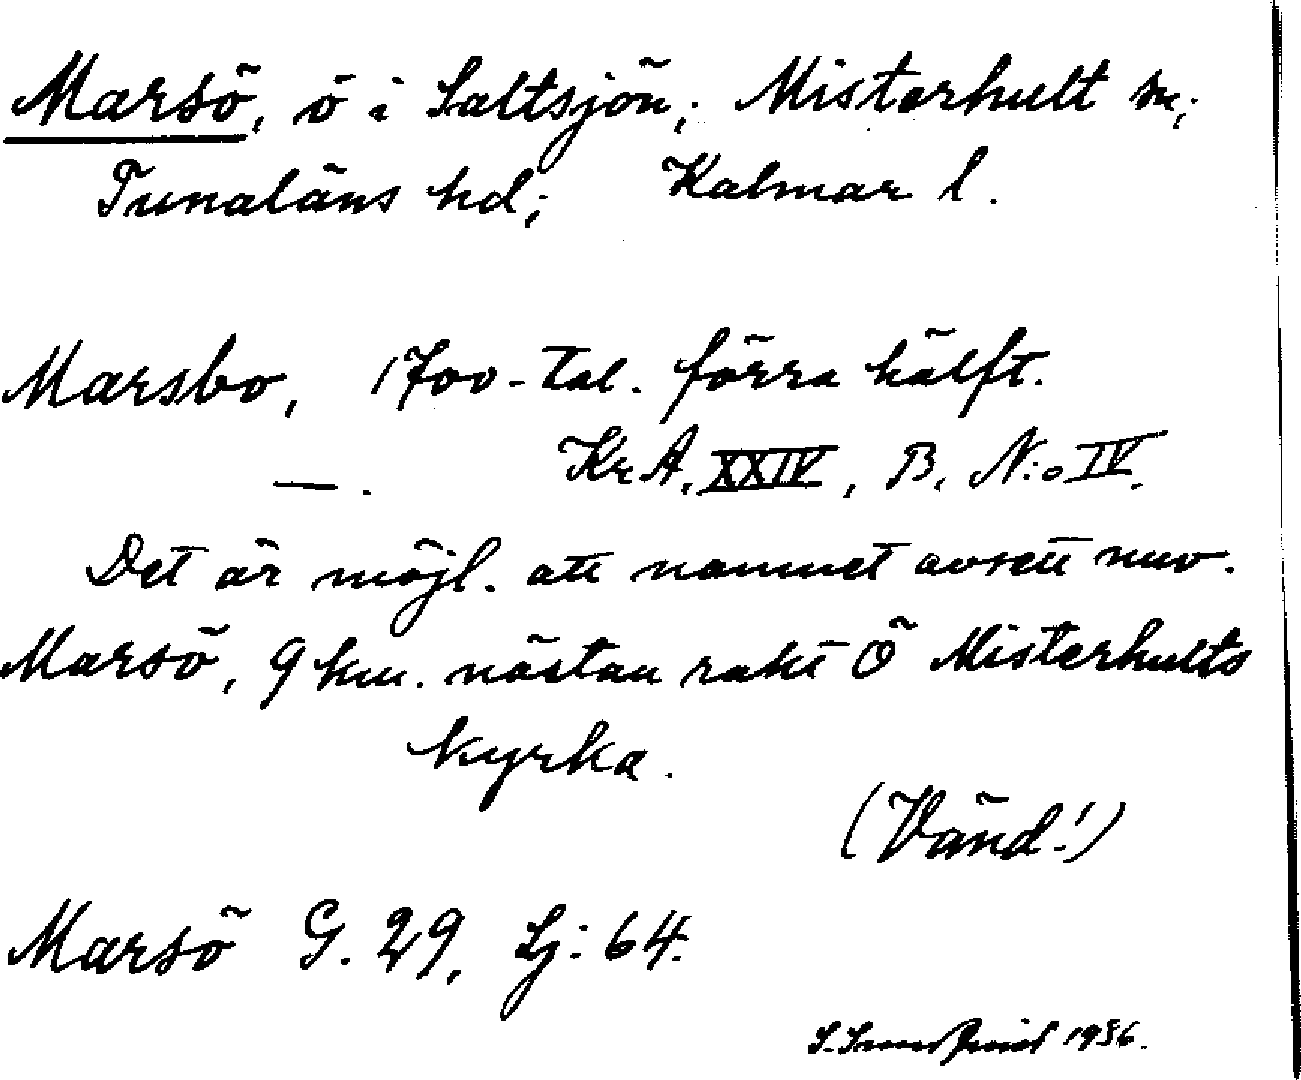 Marsö, ö i Saltsjön; Misterhult sn;
Tunaläns hd; Kalmar l.
Marsbo, 1700-tal. förra hälft.
— . Kr.A. XXIV, B, N:o IV.
Det är möjl. att namnet avsett nuv.
Marsö, 9 km. nästan rakt Ö Misterhults
kyrka.
(Vänd!)
Marsö G. 29, Lj: 64.
S. 1936.